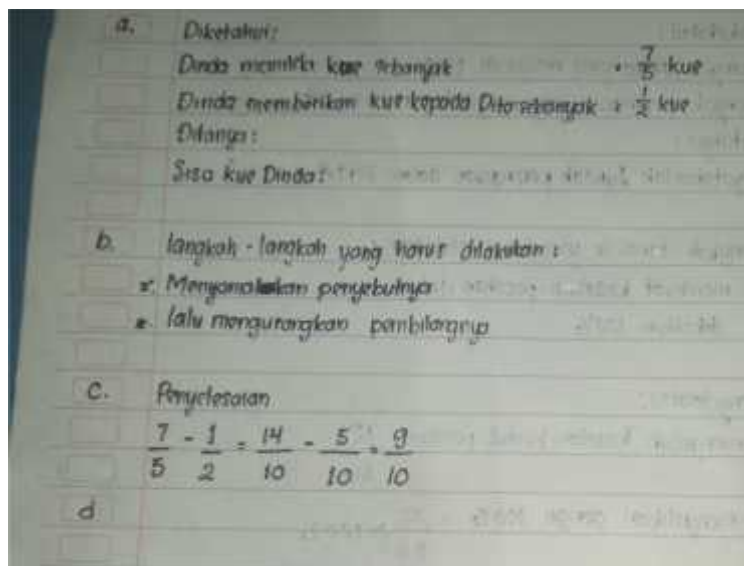 a. Diketahui:
Dinda memiliki kue sebanyak : 7/5 kue
Dinda memberikan kue kepada Dita sebanyak : 1/2 kue
Ditanya:
Sisa kue Dinda?
b. langkah - langkah yang harus dilakukan :
*. Menyamakan penyebutnya
*. lalu mengurangkan pembilangnya
c. Penyelesaian
7/5 - 1/2 = 14/10 - 5/10 = 9/10
d